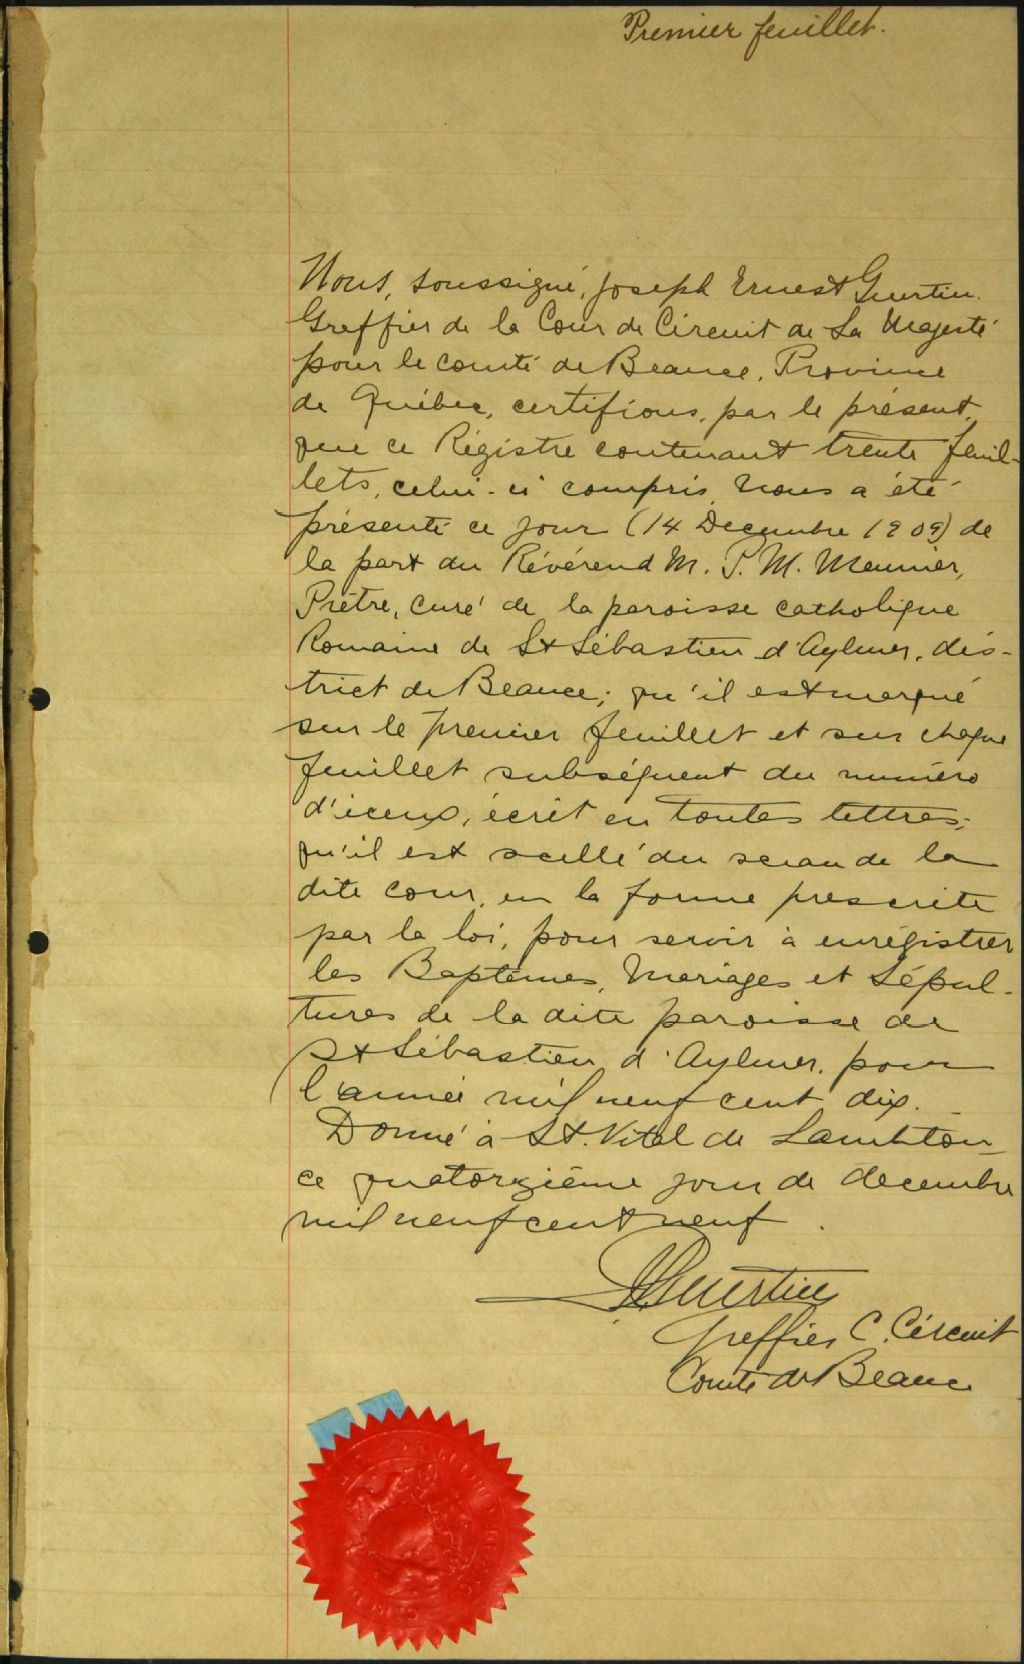 Premier feuillet.
Nous, soussigné, Joseph Ernest Guertin.
Greffier de la Cour de Circuit de Sa Majesté
pour le comté de Beauce, Province
de Québec, certifions, par le présent,
que ce Régistre contenant trente feuil-
lets, celui-ci compris, nous a été
présenté ce jour (14 Decembre 1909) de
la part du Révérend M. P. M. Meunier,
Prêtre, curé de la paroisse catholique
Romaine de St Sébastien d'Aylmer, dis-
trict de Beauce; qu'il est marqué
sur le premier feuillet et sur chaque
feuillet subséquent du numéro
d'iceux, écrit en toutes lettres;
qu'il est scellé du sceau de la
dite cour, en la forme prescrite
par la loi, pour servir à enrégistrer
les Baptêmes, Mariages et Sépul-
tures de la dite paroisse de
St Sébastien d'Aylmer, pour
l'année mil neuf cent dix.
Donné à St. Vital de Lambton
ce quatorzième jour de décembre
mil neuf cent neuf.
Guertin
Greffier C. Circuit
Comté de Beauce